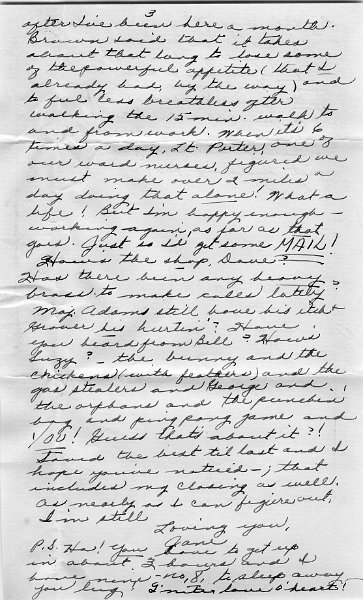 3
after I've been here a month.
Brown said that it takes
about that long to lose some
of the powerful appetite (that I
already had, by the way) and
to ful less breathless after
walking the 15 min. walk to
and from work. When its 6
times a day, Lt. Porter, one of
our ward nurses, figured we
must make over 2 miles a
day doing that alone! What a
life! But I'm happy enough —
working again, as far as that
goes. Just so I'd get some MAIL!
How's the ship, Dave?
Has there been any heavy
brass to make calls lately?
Maj. Adams still have his itch &
Grover his hurtin'? Have
you heard from Bill? How's
Suzy? — the bunny and the
chickens (with feathers) and the
gas stealers and George and
the orphans and the punchin
bag and ping pong game and
YOU! Guess that's about it?!
Saved the best til last and I
hope you've noticed —; that
included my closing as well.
As nearly as I can figure out,
I'm still
Loving you,
Jane
P.S. Ha! You have to get up
in about 2 hours and I
have mine — no, 8, to sleep away
you lug! I'm ter love o' heart!